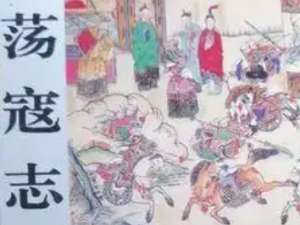 荡寇志